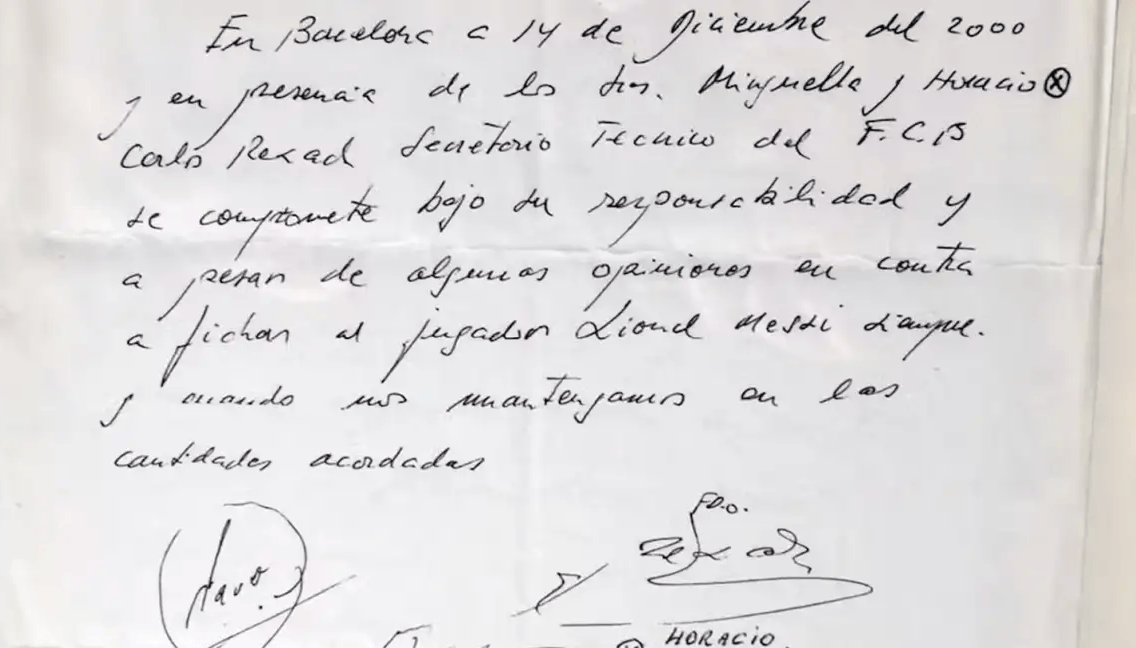 En Barcelona a 14 de Diciembre del 2000
y en presencia de los Srs. Minguella y Horacio Ⓧ
Carlos Rexad Secretario Tecnico del F.C.B
se compromete bajo su responsabilidad y
a pesar de algunas opiniones en contra
a fichar al jugador Lionel Messi siempre.
y cuando nos mantengamos en las
cantidades acordadas
FDO.
Rexach
HORACIO